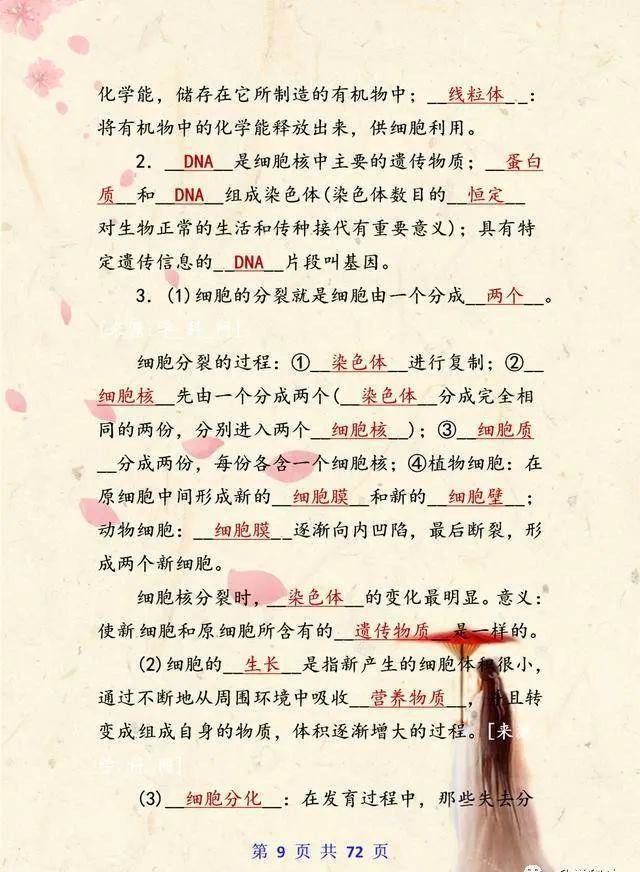 化学能，储存在它所制造的有机物中；__线粒体__：
将有机物中的化学能释放出来，供细胞利用。
2．__DNA__是细胞核中主要的遗传物质；__蛋白
质__和__DNA__组成染色体(染色体数目的__恒定__
对生物正常的生活和传种接代有重要意义)；具有特
定遗传信息的__DNA__片段叫基因。
3．(1)细胞的分裂就是细胞由一个分成__两个__。
细胞分裂的过程：①__染色体__进行复制；②__
细胞核__先由一个分成两个(__染色体__分成完全相
同的两份，分别进入两个__细胞核__)；③__细胞质
__分成两份，每份各含一个细胞核；④植物细胞：在
原细胞中间形成新的__细胞膜__和新的__细胞壁__；
动物细胞：__细胞膜__逐渐向内凹陷，最后断裂，形
成两个新细胞。
细胞核分裂时，__染色体__的变化最明显。意义：
使新细胞和原细胞所含有的__遗传物质__是一样的。
(2)细胞的__生长__是指新产生的细胞体积很小，
通过不断地从周围环境中吸收__营养物质__，并且转
变成组成自身的物质，体积逐渐增大的过程。[来
(3)__细胞分化__：在发育过程中，那些失去分
第 9 页 共 72 页